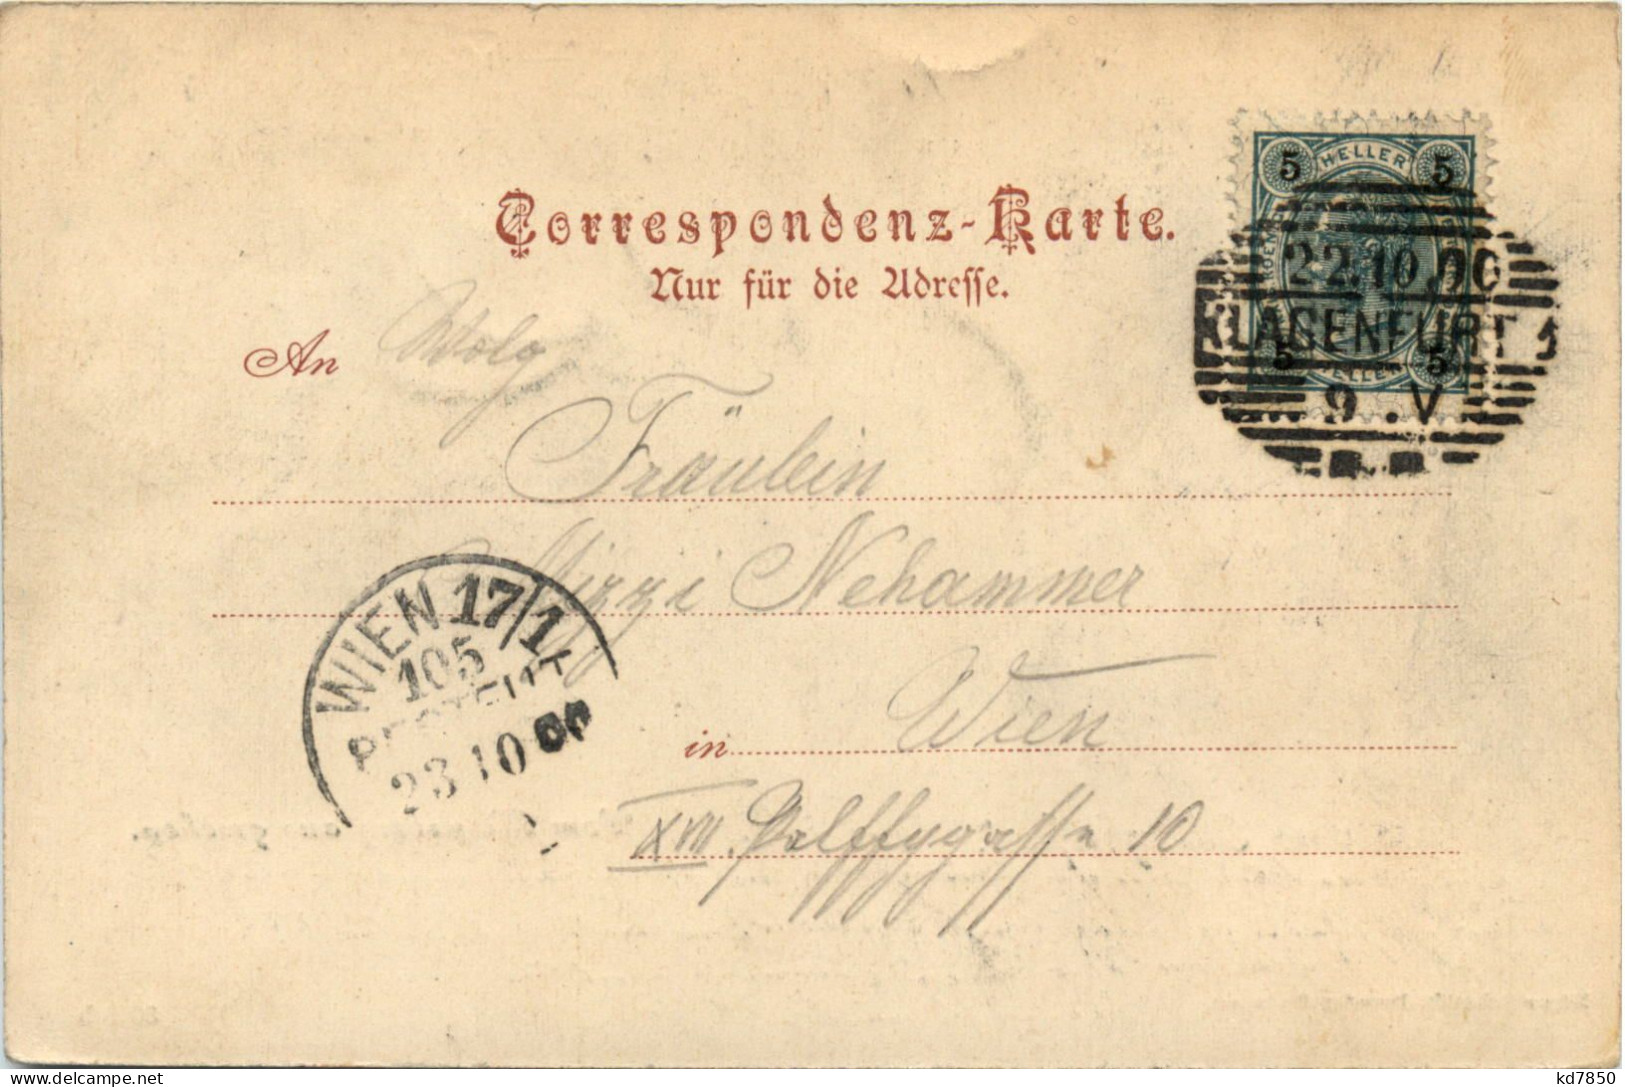 Correspondenz-Karte.
Nur für die Adresse.
5 HELLER 5
22.10.00
KLAGENFURT 1
5 HELLER 5
9.V
An
Fräulein
Mizzi Nehammer
WIEN 17/1
105
BESTELLT
23 10 00
in Wien
XVII. Palffygasse 10.
kd7850